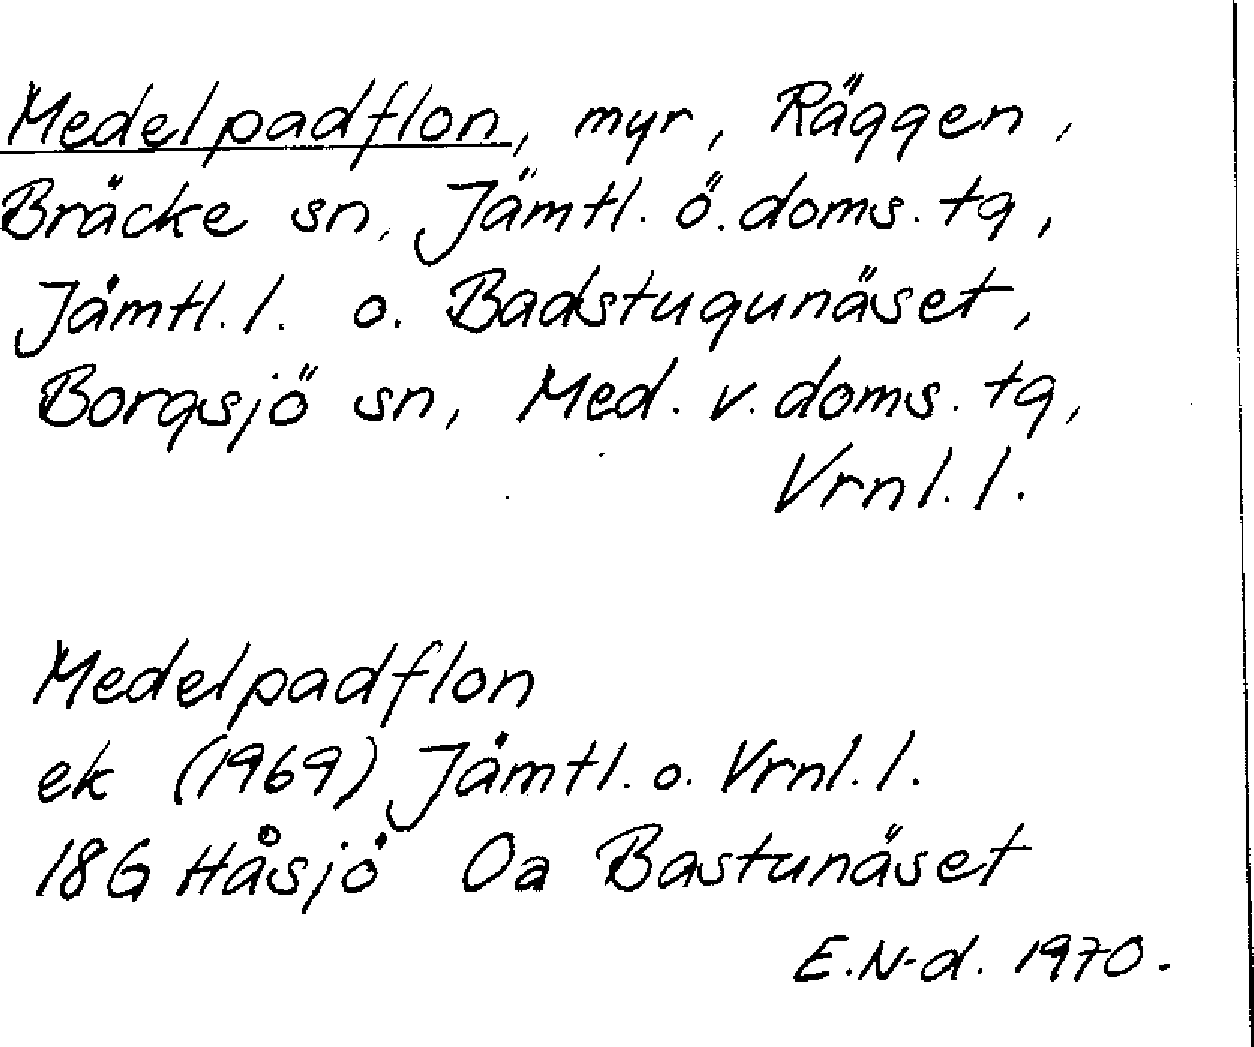 Medelpadflon, myr, Räggen,
Bräcke sn, Jämtl. ö. doms. tg,
Jämtl. l. o. Badstugunäset,
Borgsjö sn, Med. v. doms. tg,
Vrnl. l.
Medelpadflon
ek (1969) Jämtl. o. Vrnl. l.
18G Håsjö 0a Bastunäset
E.N-d. 1970.